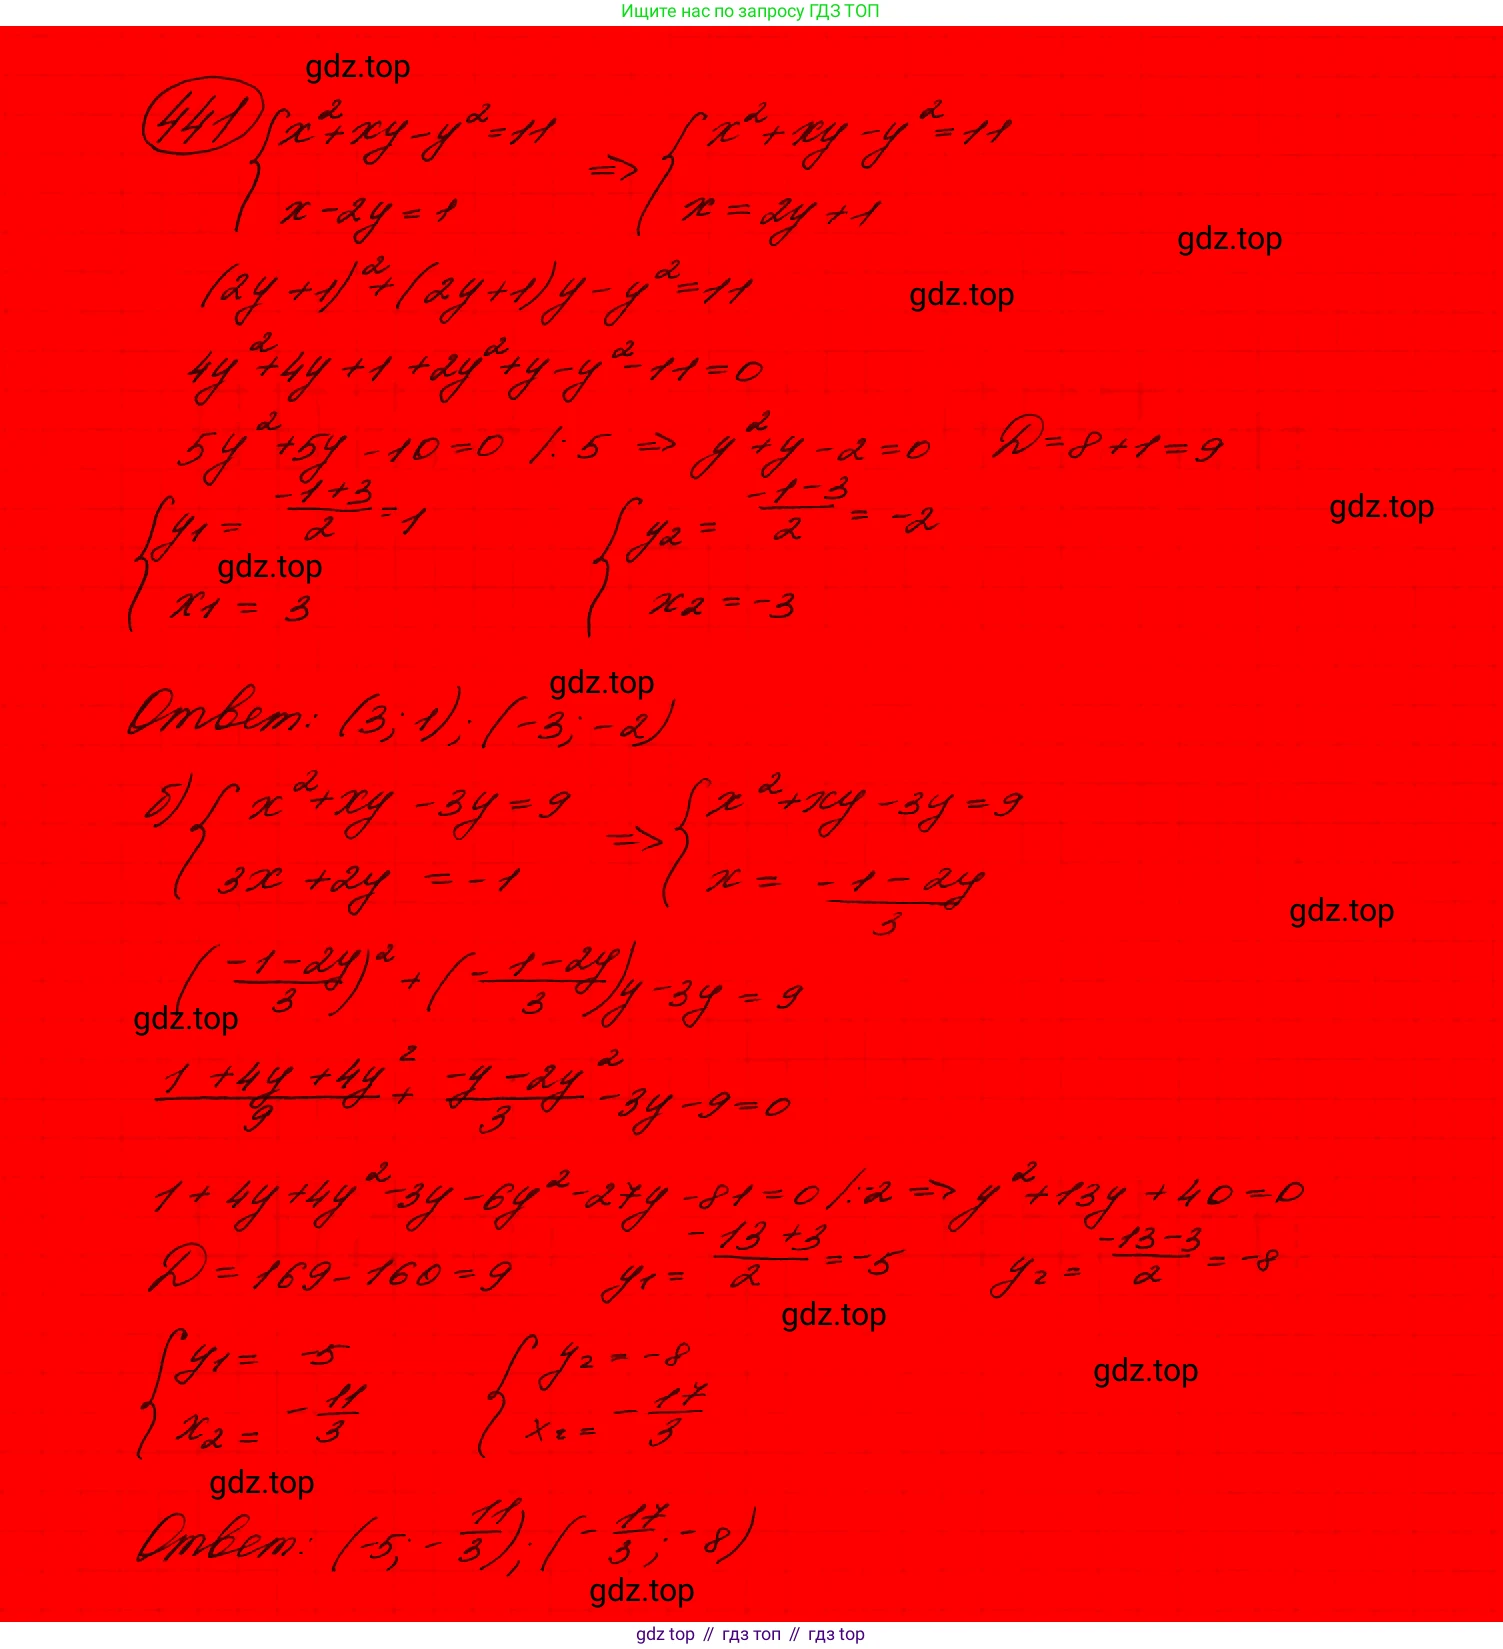 Ищите нас по запросу ГДЗ ТОП
gdz.top
441
{ x² + xy - y² = 11 => { x² + xy - y² = 11
x - 2y = 1 x = 2y + 1
gdz.top
(2y + 1)² + (2y + 1)y - y² = 11
gdz.top
4y² + 4y + 1 + 2y² + y - y² - 11 = 0
5y² + 5y - 10 = 0 /: 5 => y² + y - 2 = 0 D = 8 + 1 = 9
{ y₁ = (-1 + 3)/2 = 1 { y₂ = (-1 - 3)/2 = -2
gdz.top
gdz.top
x₁ = 3 x₂ = -3
gdz.top
Ответ: (3; 1); (-3; -2)
б) { x² + xy - 3y = 9 => { x² + xy - 3y = 9
3x + 2y = -1 x = (-1 - 2y)/3
gdz.top
((-1 - 2y)/3)² + ((-1 - 2y)/3)y - 3y = 9
gdz.top
(1 + 4y + 4y²)/9 + (-y - 2y²)/3 - 3y - 9 = 0
1 + 4y + 4y² - 3y - 6y² - 27y - 81 = 0 /: -2 => y² + 13y + 40 = 0
D = 169 - 160 = 9 y₁ = (-13 + 3)/2 = -5 y₂ = (-13 - 3)/2 = -8
gdz.top
{ y₁ = -5 { y₂ = -8
gdz.top
x₂ = -11/3 x₂ = -17/3
gdz.top
Ответ: (-5; -11/3); (-17/3; -8)
gdz.top
gdz top // гдз топ // гдз top